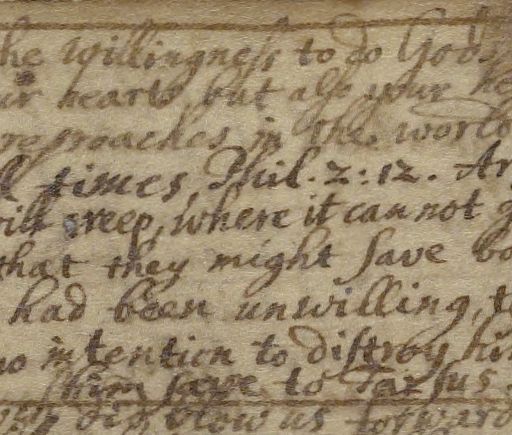 he willingneſs to do Gods
ur hearts, but alſo your he
reproaches in the world
ll times, Phil. 2:12. An
will creep, where it can not g
that they might ſave bo
had been unwilling, to
no intention to diſtroy him
him ſave to Tarſus.
did blow us forward